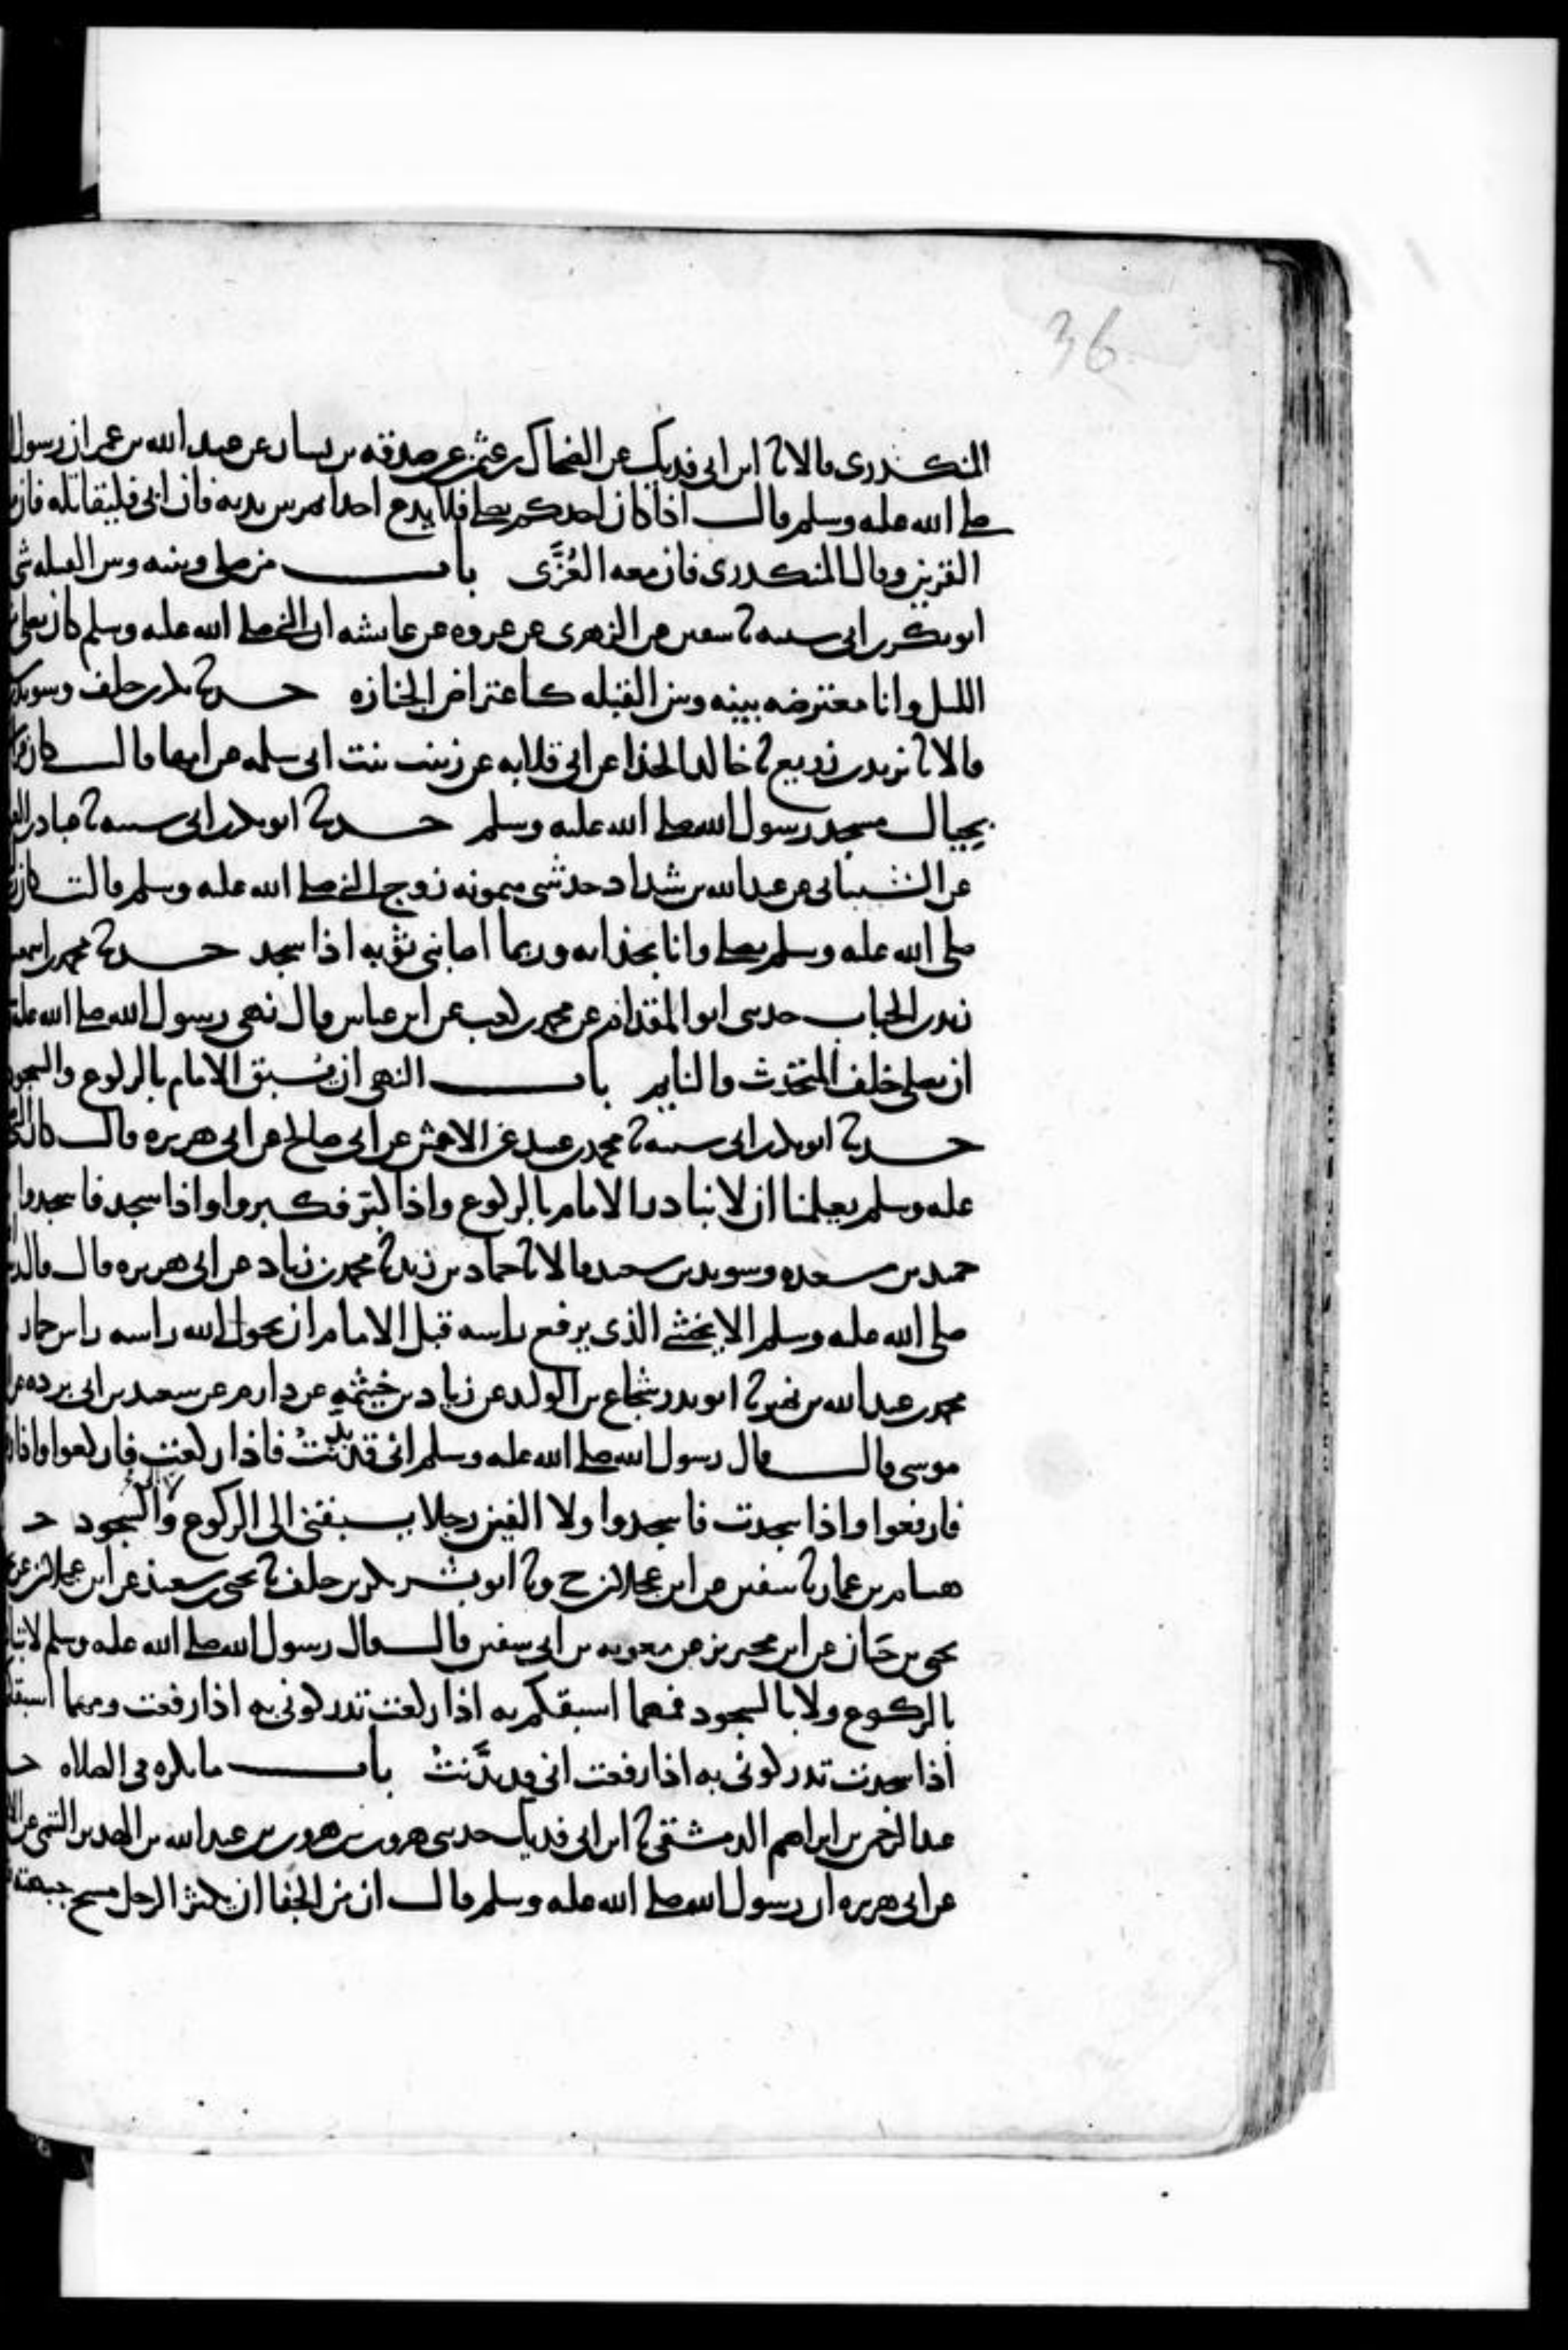 36
المنكدرى قالا نا ابن ابى فديك عن الضحاك بن عثمن عن صدقه بن يسار عن عبد الله بن عمر ان رسول
صلى الله عليه وسلم قال اذا كان احدكم يصلى فلا يدع احدا يمر بين يديه فان ابى فليقاتله فان
القرين وقال المنكدرى فان معه العُزَّى باب من صلى وبينه وبين القبله شى
ابو بكر بن ابى شيبه نا سفين عن الزهرى عن عروه عن عايشه ان النبى صلى الله عليه وسلم كان يصلى
الليل وانا معترضه بينه وبين القبله كاعتراض الجنازه حدثنا بكر بن خلف وسويد
قالا نا يزيد بن زريع نا خالد الحذا عن ابى قلابه عن زينب بنت ابى سلمه عن امها قالت كان
بحيال مسجد رسول الله صلى الله عليه وسلم حدثنا ابو بكر بن ابى شيبه نا عباد بن
عن الشيبانى عن عبد الله بن شداد حدثتنى ميمونه زوج النبى صلى الله عليه وسلم قالت كان
صلى الله عليه وسلم يصلى وانا بحذايه وربما اصابنى ثوبه اذا سجد حدثنا محمد بن اسمعيل
زيد بن الحباب حدثنى ابو المقدام عن محمد بن كعب عن ابن عباس قال نهى رسول الله صلى الله عليه
ان يصلى خلف المتحدث والنايم باب النهى ان يُسبق الامام بالركوع والسجود
حدثنا ابو بكر بن ابى شيبه نا محمد بن عبيد عن الاعمش عن ابى صالح عن ابى هريره قال كان النبى
عليه وسلم يعلمنا ان لا نبادر الامام بالركوع واذا كبّر فكبروا واذا سجد فاسجدوا
حميد بن مسعده وسويد بن سعيد قالا نا حماد بن زيد نا محمد بن زياد عن ابى هريره قال قال
صلى الله عليه وسلم الا يخشى الذى يرفع راسه قبل الامام ان يحول الله راسه راس حمار
محمد بن عبد الله بن نمير نا ابو بدر شجاع بن الوليد عن زياد بن خيثمه عن دارم عن سعيد بن ابى برده عن
موسى قال قال رسول الله صلى الله عليه وسلم انى قد بدنتُ فاذا ركعت فاركعوا واذا
فارفعوا واذا سجدت فاسجدوا ولا الفين رجلا يسبقنى الى الركوع ولا الى السجود حـ
هشام بن عمار نا سفين عن ابن عجلان ح ونا ابو بشر بكر بن خلف نا يحيى بن سعيد عن ابن عجلان عن
يحيى بن حَبان عن ابن محيريز عن معويه بن ابى سفين قال قال رسول الله صلى الله عليه وسلم لا
بالركوع ولا بالسجود فمهما اسبقكم به اذا ركعت تدركونى به اذا رفعت ومهما اسبقكم
اذا سجدت تدركونى به اذا رفعت انى قد بدَّنتُ باب ما يكره فى الصلاه حـ
عبد الرحمن بن ابراهيم الدمشقى نا ابن ابى فديك حدثنى هرون بن هرون بن عبد الله بن الهدير التيمى عن
عن ابى هريره ان رسول الله صلى الله عليه وسلم قال ان من الجفا ان يكثر الرجل مسح جبهته